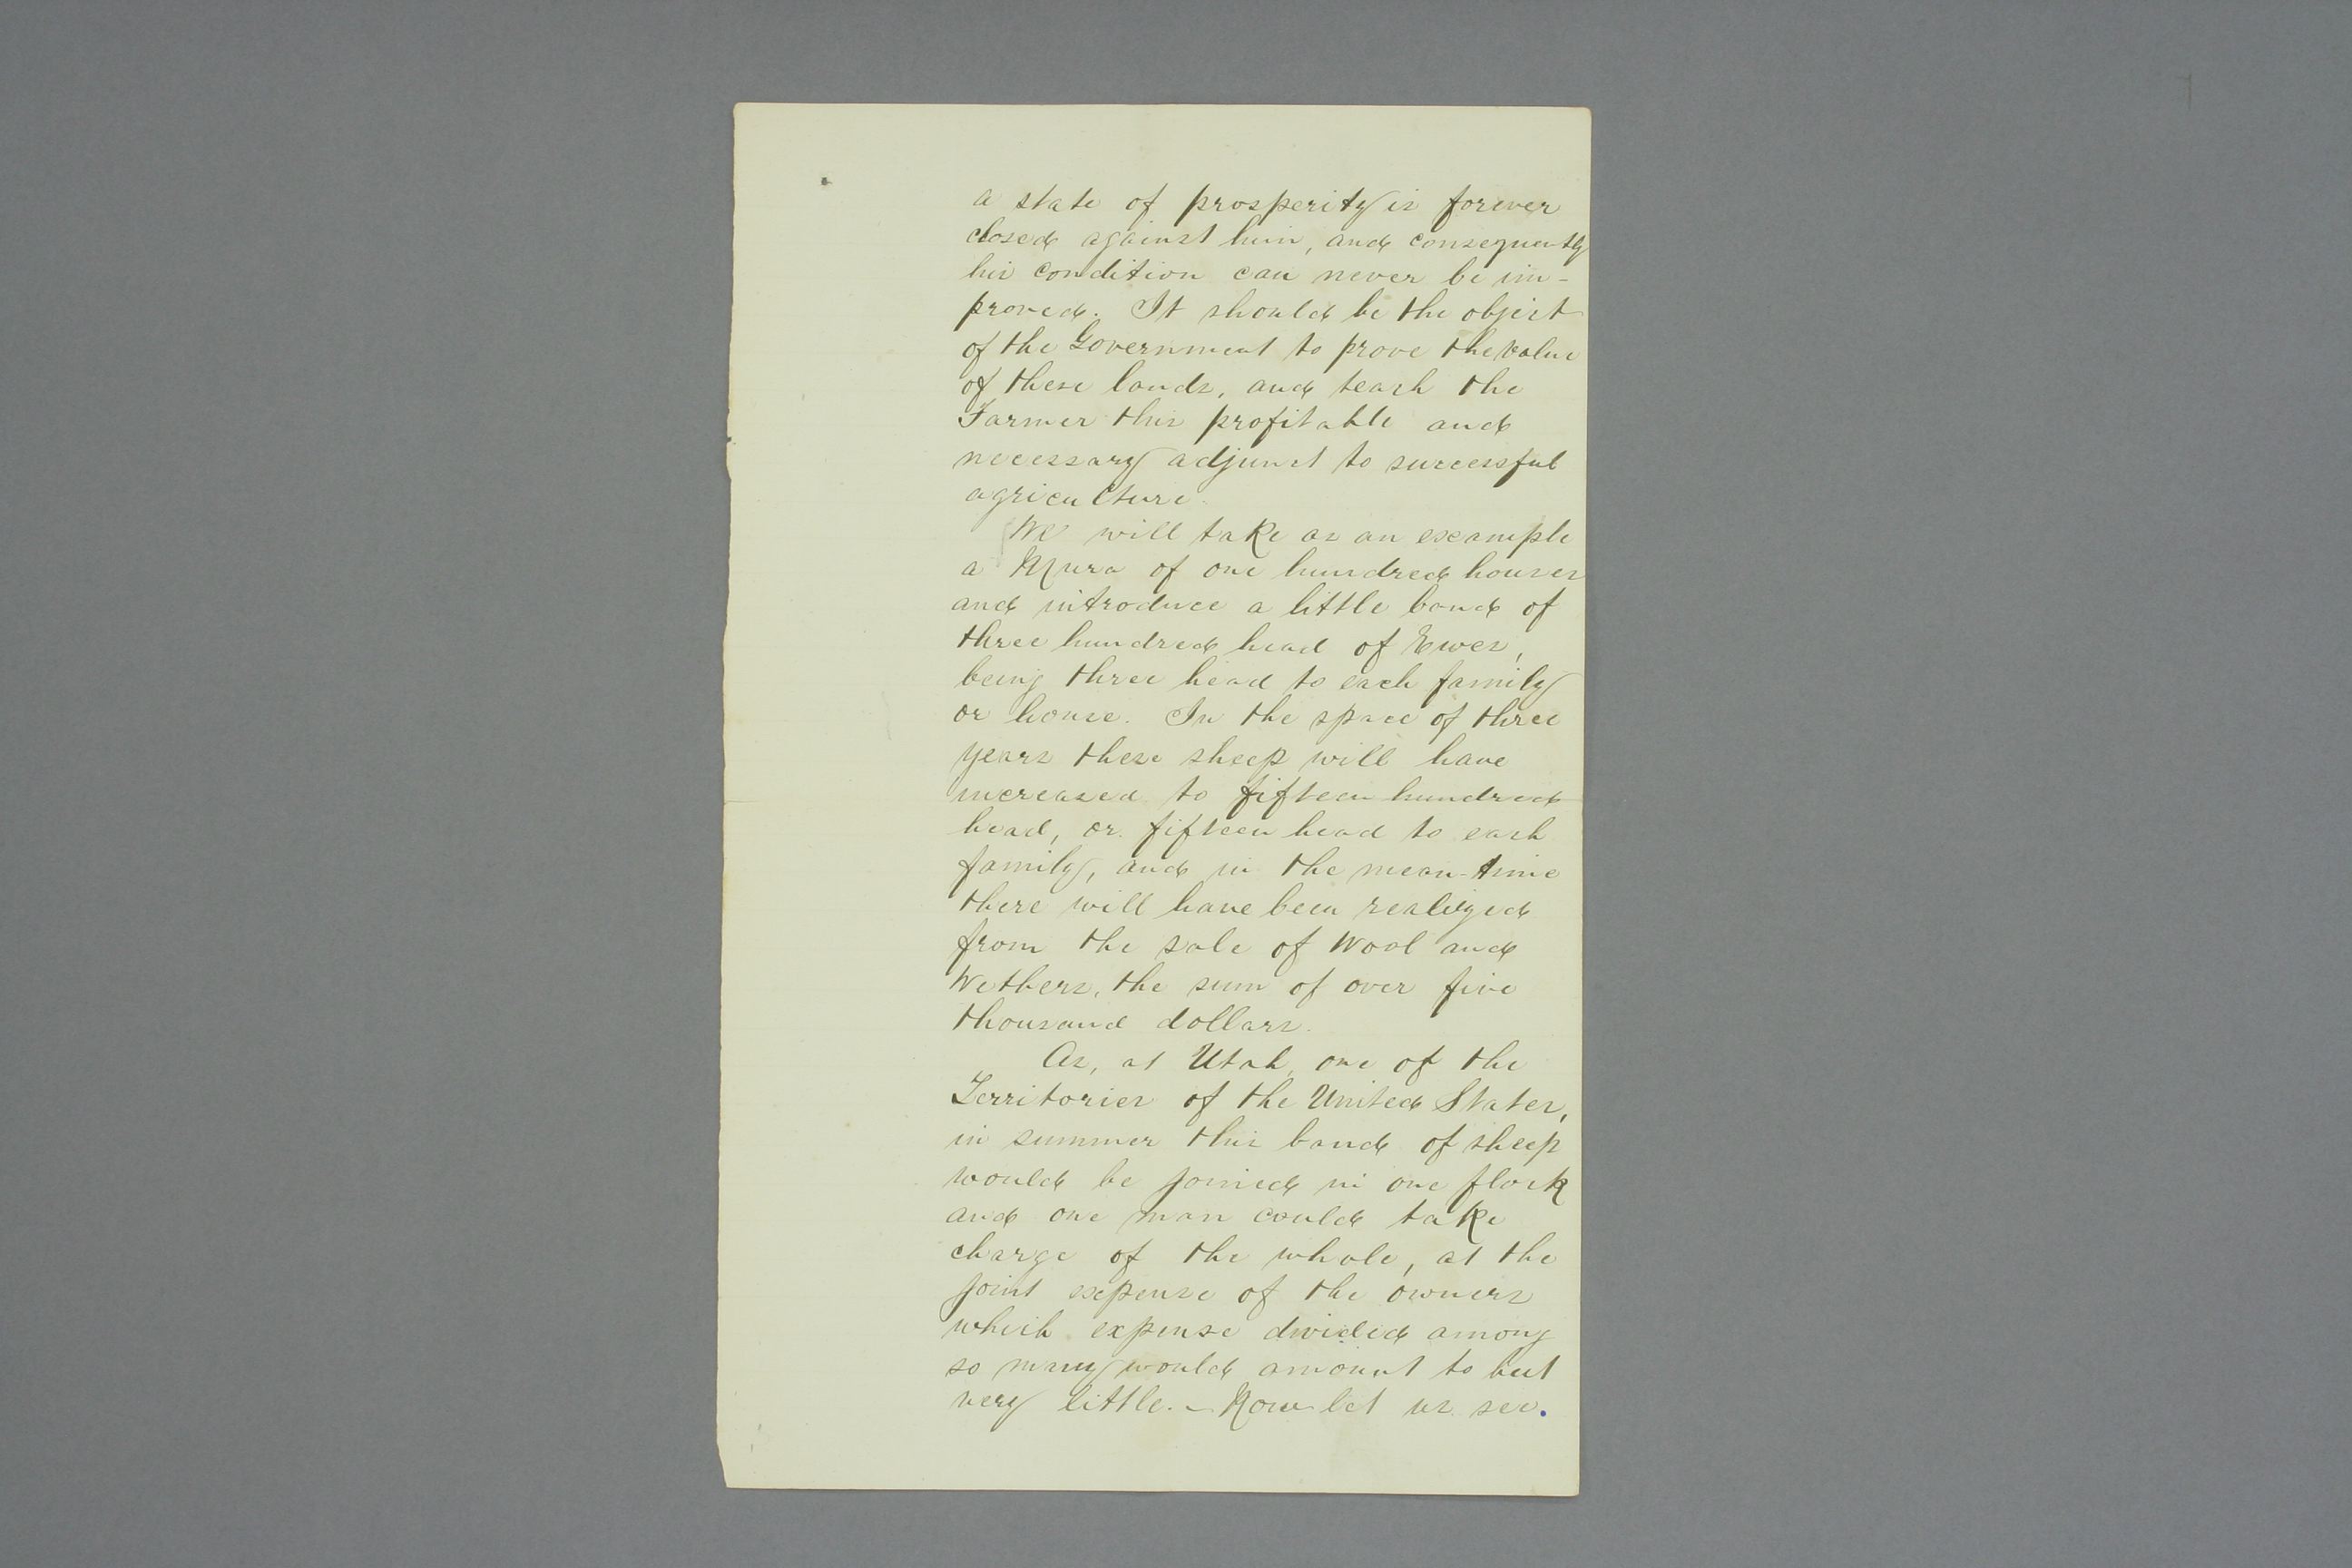 a state of prosperity is forever
closed against him, and consequently
his condition can never be im-
proved. It should be the object
of the Government to prove the value
of these lands, and teach the
Farmer this profitable and
necessary adjunct to successful
agriculture.
We will take as an example
a Mura of one hundred houses
and introduce a little band of
three hundred head of Ewes,
being three head to each family
or house. In the space of three
years these sheep will have
increased to fifteen hundred
head, or fifteen head to each
family, and in the mean-time
there will have been realized
from the sale of Wool and
Wethers, the sum of over five
thousand dollars.
As, at Utah, one of the
Territories of the United States,
in summer this band of sheep
would be joined in one flock
and one man could take
charge of the whole, at the
joint expense of the owners
which expense divided among
so many would amount to but
very little. - Now let us see.